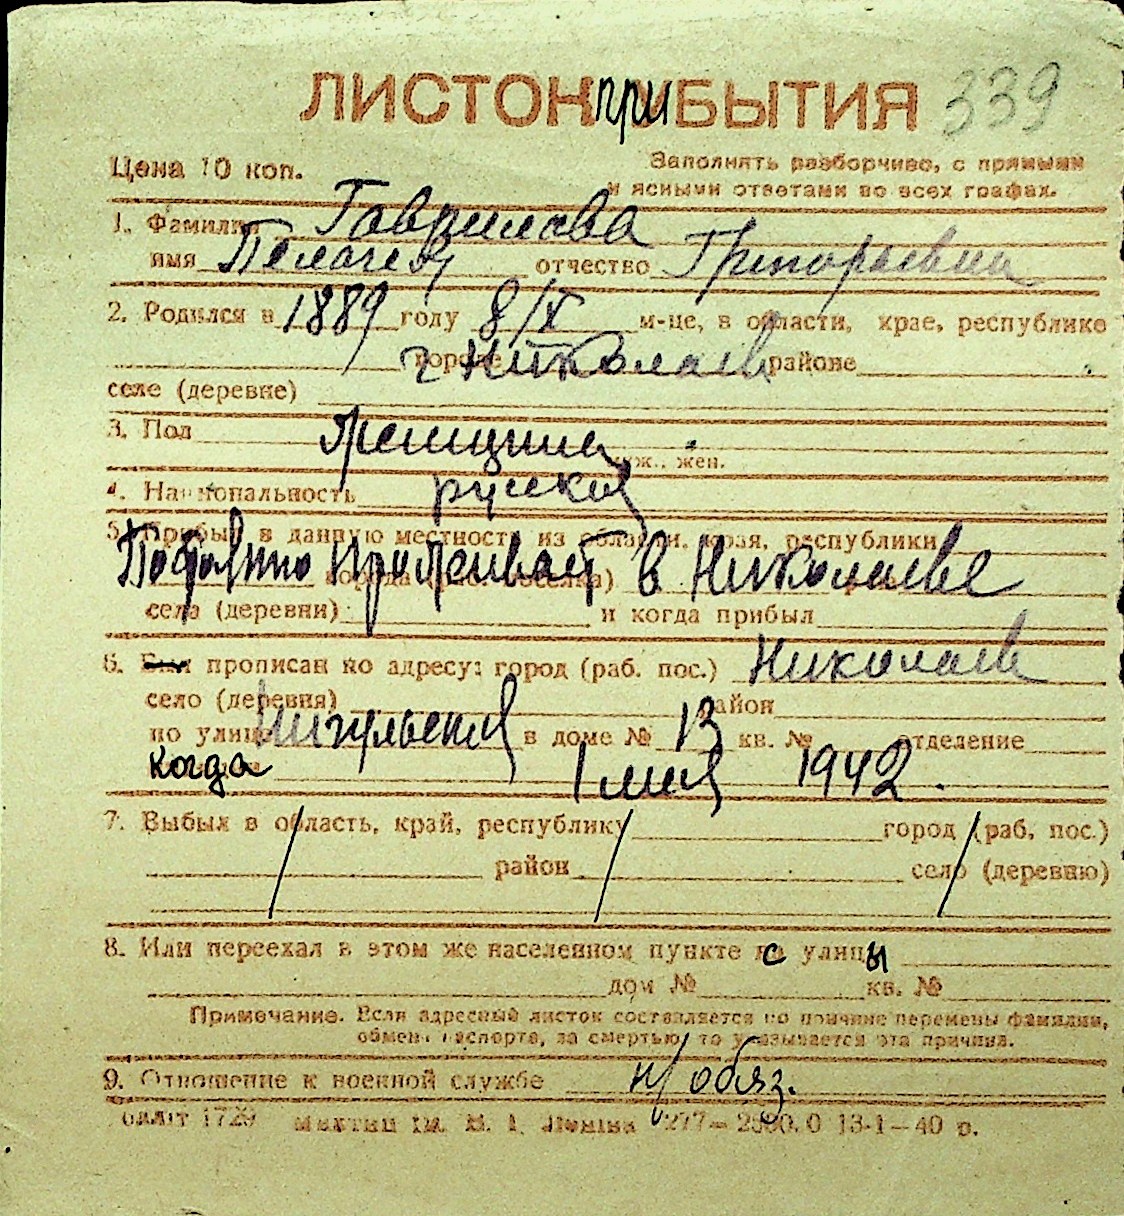 ЛИСТОК при БЫТИЯ 339
Цена 10 коп. Заполнять разборчиво, с прямыми
и ясными ответами во всех графах.
1. Фамилия Гаврилова
имя Пелагея отчество Григорьевна
2. Родился в 1889 году 8/X м-це, в области, крае, республике
городе г Николаев районе
селе (деревне)
3. Пол Женщина муж., жен.
4. Национальность русская
5. Прибыл в данную местность из области, края, республики
Постоянно проживает в Николаеве
села (деревни) и когда прибыл
6. Был прописан по адресу: город (раб. пос.) Николаев
село (деревня) район
по улице Ингульской в доме № 13 кв. № отделение
когда 1 мая 1942.
7. Выбыл в область, край, республику город (раб. пос.)
район село (деревню)
8. Или переехал в этом же населенном пункте с улицы
дом № кв. №
Примечание. Если адресный листок составляется по причине перемены фамилии,
обмена паспорта, за смертью, то указывается эта причина.
9. Отношение к военной службе н/обяз.
1729 ім. В. І. Леніна 277— 13-1—40 р.